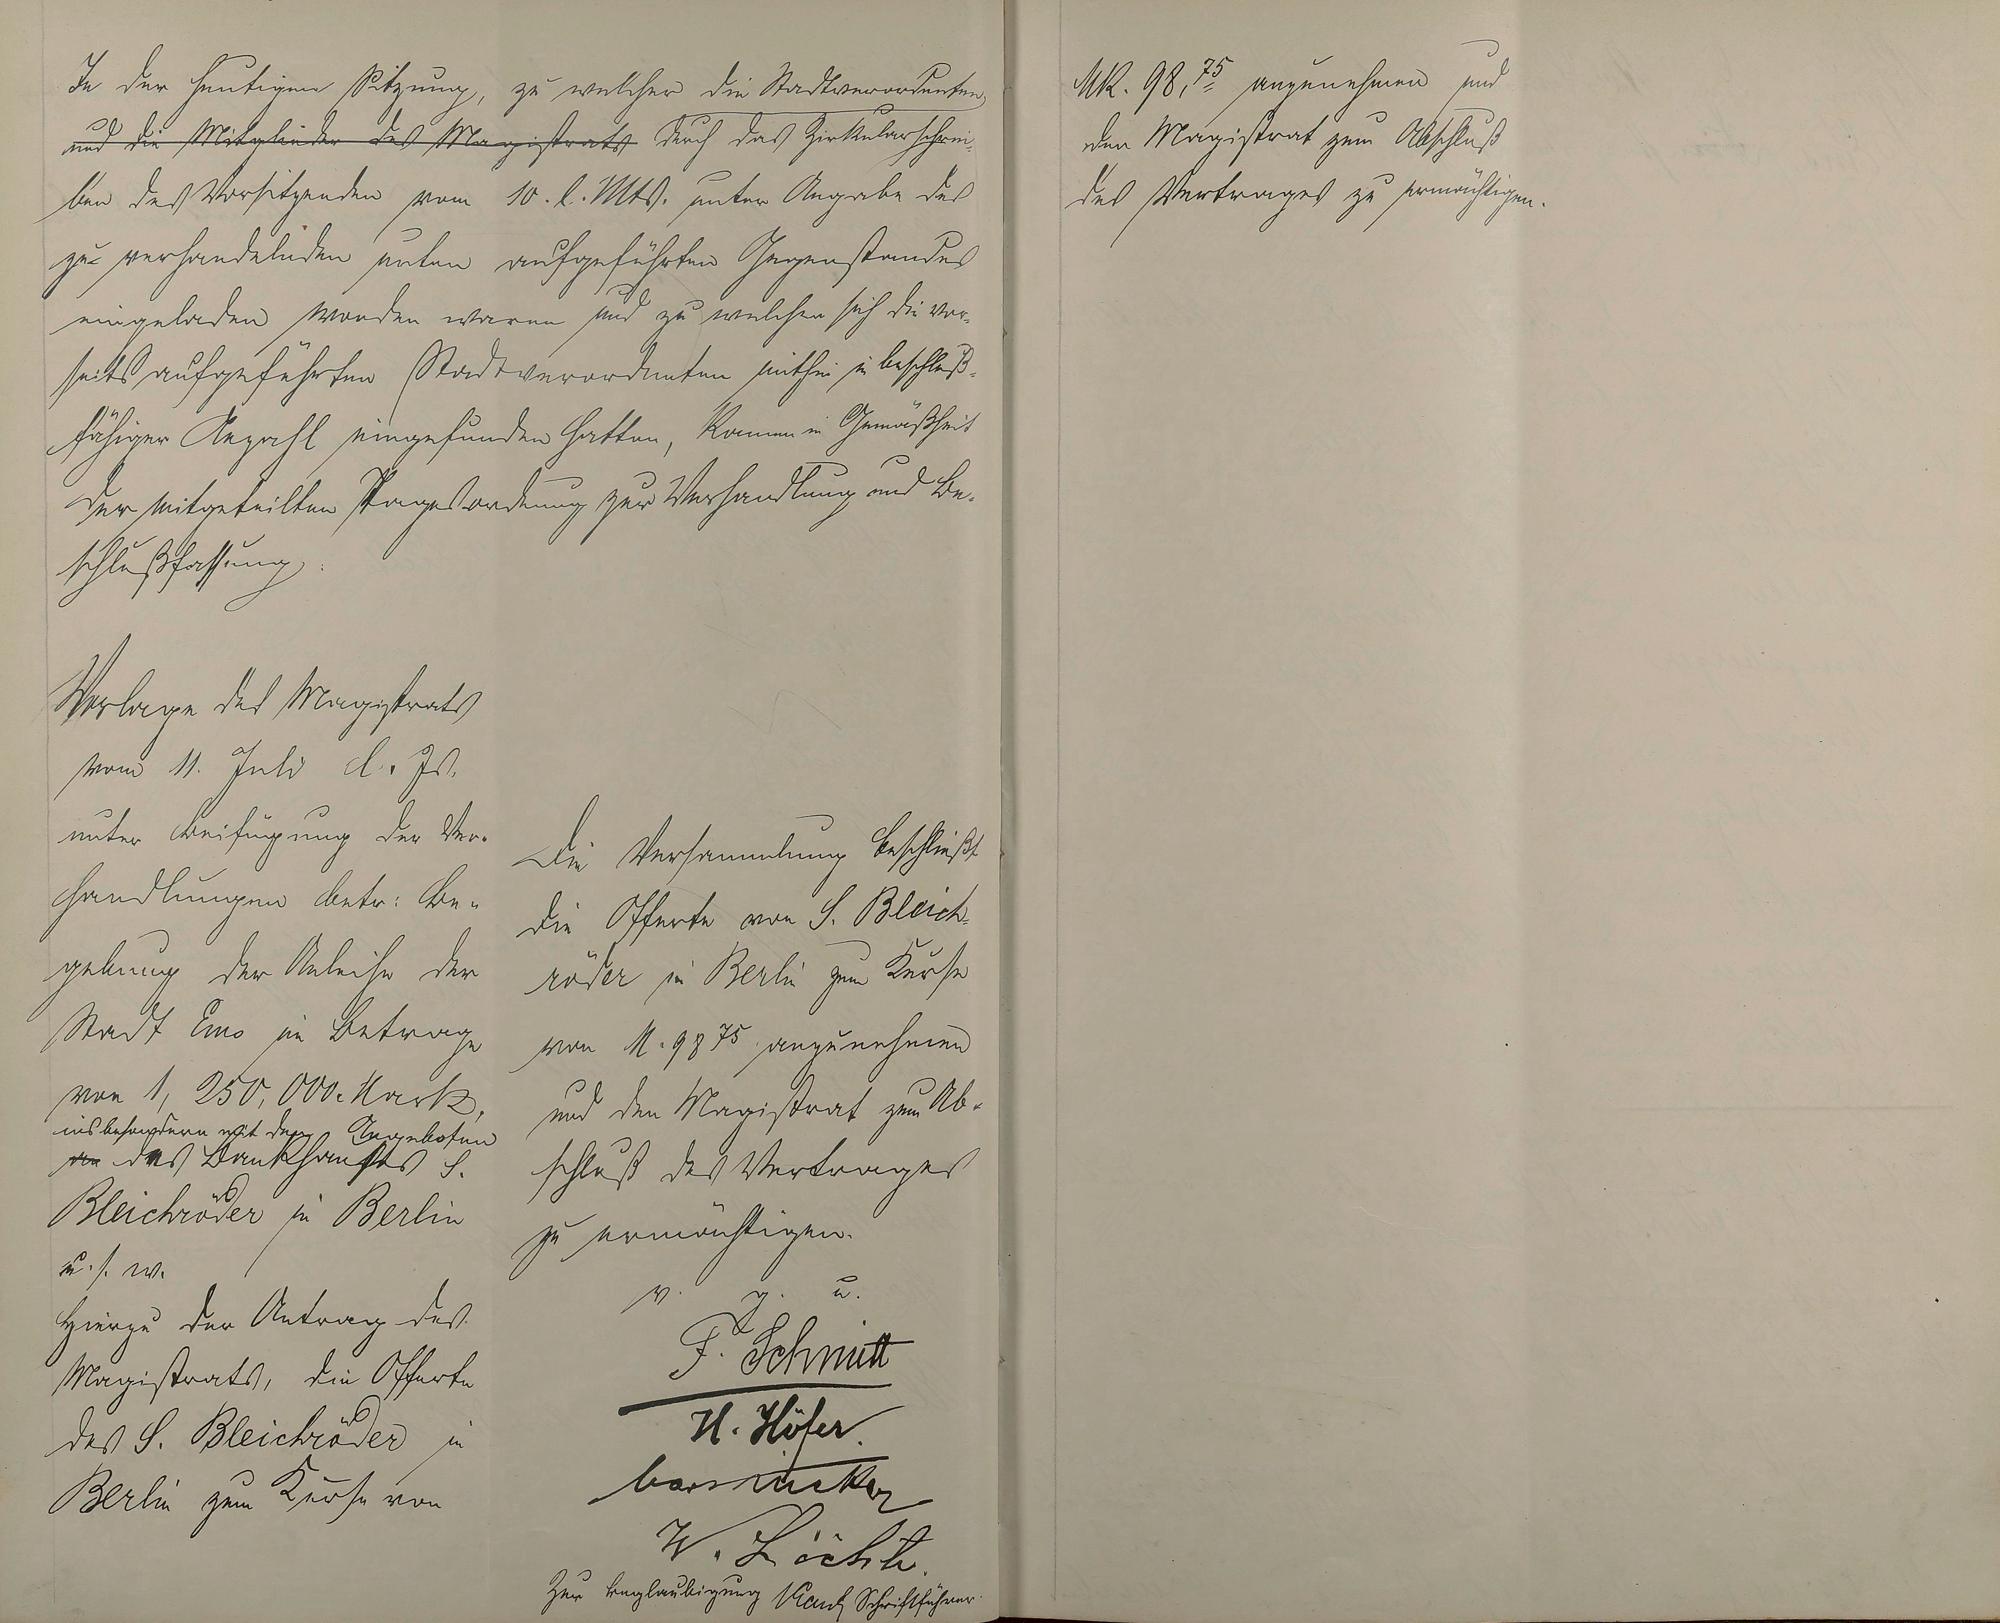 In der heutigen Sitzung, zu welcher die Stadtverordneten
und die Mitglieder des Magistrats durch das Zirkularschrei-
ben des Vorsitzenden vom 10. l. Mts. unter Angabe des
zu verhandelnden unten aufgeführten Gegenstandes
eingeladen worden waren und zu welcher sich die vor-
seits aufgeführten Stadtverordneten mithin in beschluß-
fähiger Anzahl eingefunden hatten, kamen in Gemäßheit
der mitgeteilten Tagesordnung zur Verhandlung und Be-
schlußfassung:
Vorlage des Magistrats
vom 11. Juli d. Js.
unter Beifügung der Ver-
handlungen betr: Be-
gebung der Anleihe der
Stadt Ems im Betrage
von 1,250,000. Mark,
insbesondere mit den Angeboten
von des Bankhauses S.
Bleichröder in Berlin
u. s. w.
Hierzu der Antrag des
Magistrats, die Offerte
des S. Bleichröder in
Berlin zum Kurse von
Die Versammlung beschließt
die Offerte von S. Bleich-
röder in Berlin zum Kurse
von M. 98 75 anzunehmen
und den Magistrat zum Ab-
schluß des Vertrages
zu ermächtigen.
v. g. u.
F. Schmitt
H. Höfer.
W.
Zur Beglaubigung Schriftführer.
Mk. 98,75 anzunehmen und
den Magistrat zum Abschluß
des Vertrages zu ermächtigen.